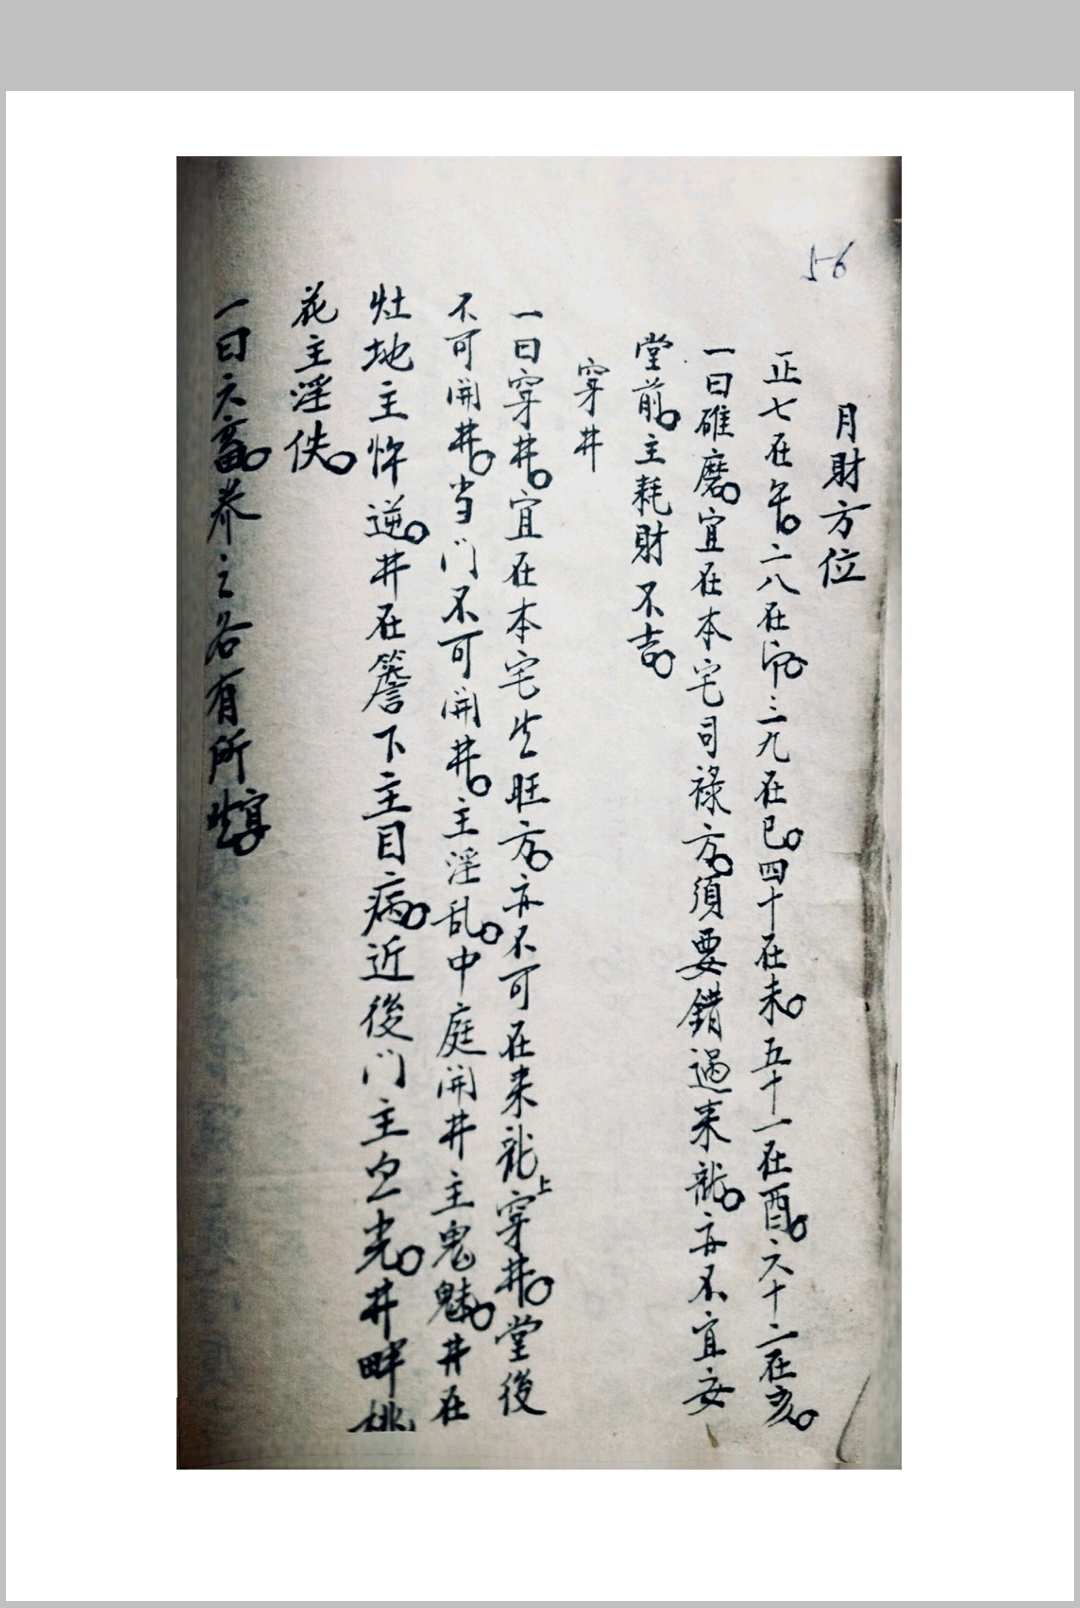 56
月財方位
正七在午。二八在 。三九在巳。四十在未。五十一在酉。六十二在亥。
一曰碓磨。宜在本宅司祿方。須要錯過来龍。亦不宜安
堂前。主耗財不吉。
穿井
一曰穿井。宜在本宅生旺方。亦不可在来龍上穿井。堂後
不可開井。当门不可開井。主淫乱。中庭開井主鬼魅。井在
灶地主忤逆。井在簷下主目病。近後门主 光。井畔桃
花主淫佚。
一曰六畜。养之各有所